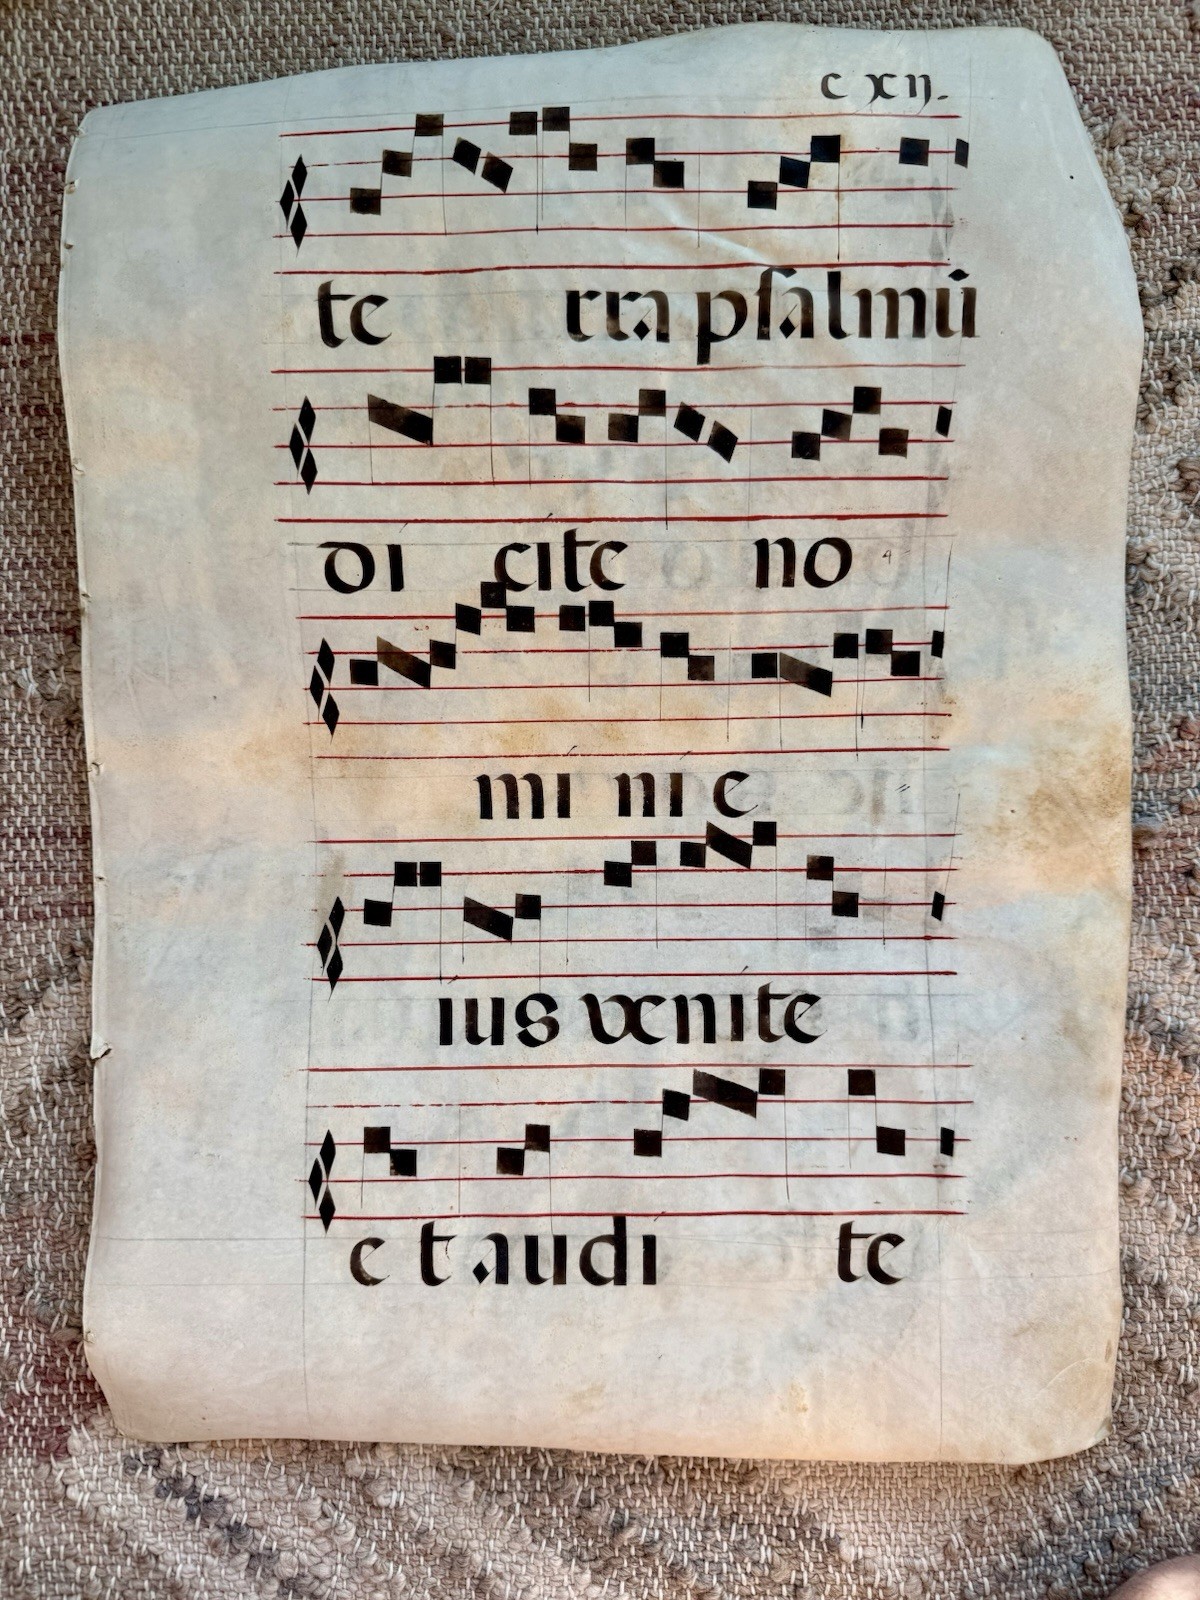 c xij.
te rra psalmū
di cite no
mi ni e
ius venite
e t audi te